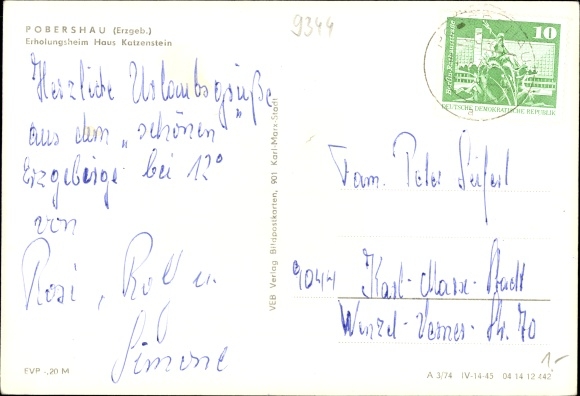 POBERSHAU (Erzgeb.)
Erholungsheim Haus Katzenstein
9344
Herzliche Urlaubsgrüße
aus dem „schönen"
Erzgebirge bei 12°
von
Rosi, Rolf u.
Simone
EVP -,20 M
VEB Verlag Bildpostkarten, 901 Karl-Marx-Stadt
10
DEUTSCHE DEMOKRATISCHE REPUBLIK
Fam. Peter Seifert
9044 Karl-Marx-Stadt
Wenzel-Verner-Str. 70
1,-
A 3/74 IV-14-45 04 14 12 442